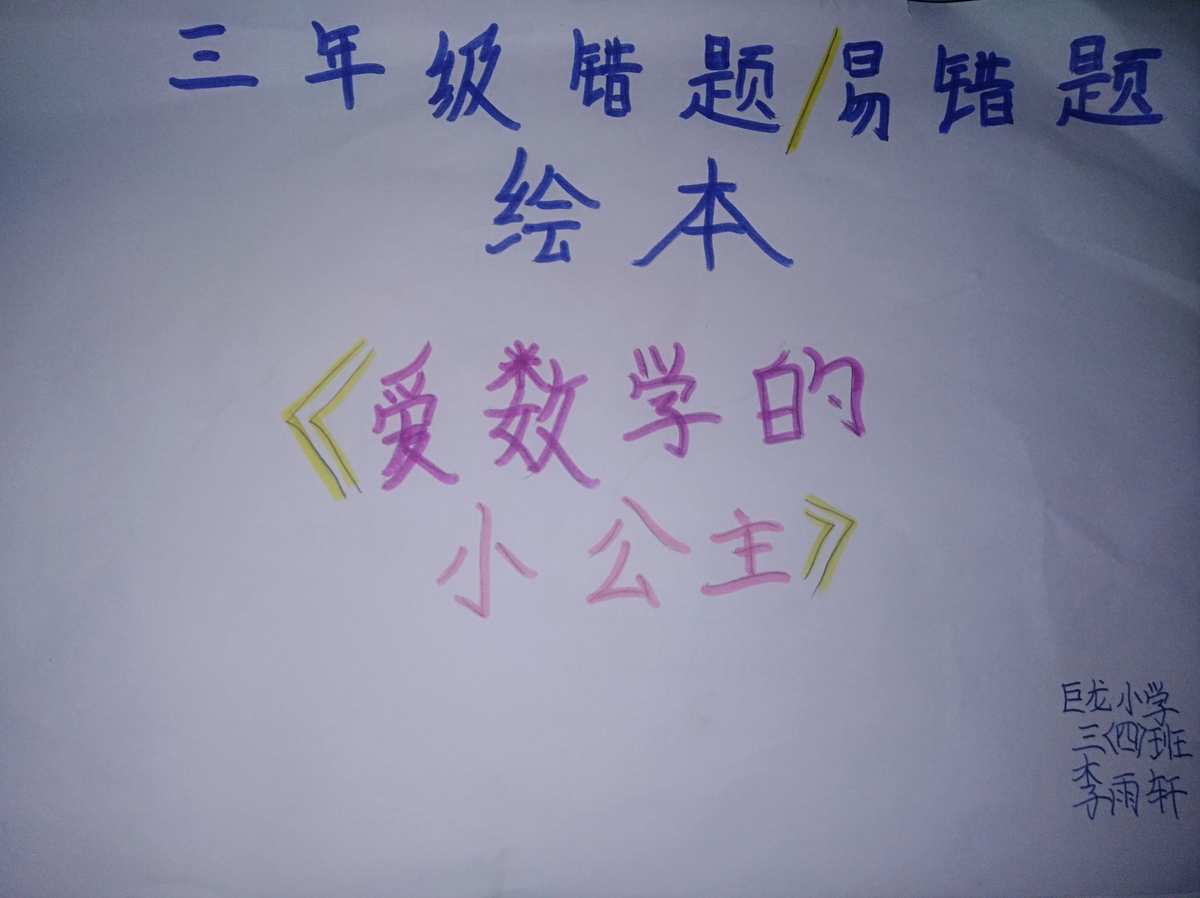 三年级错题/易错题
绘本
《爱数学的
小公主》
巨龙小学
三〈四〉班
李雨轩